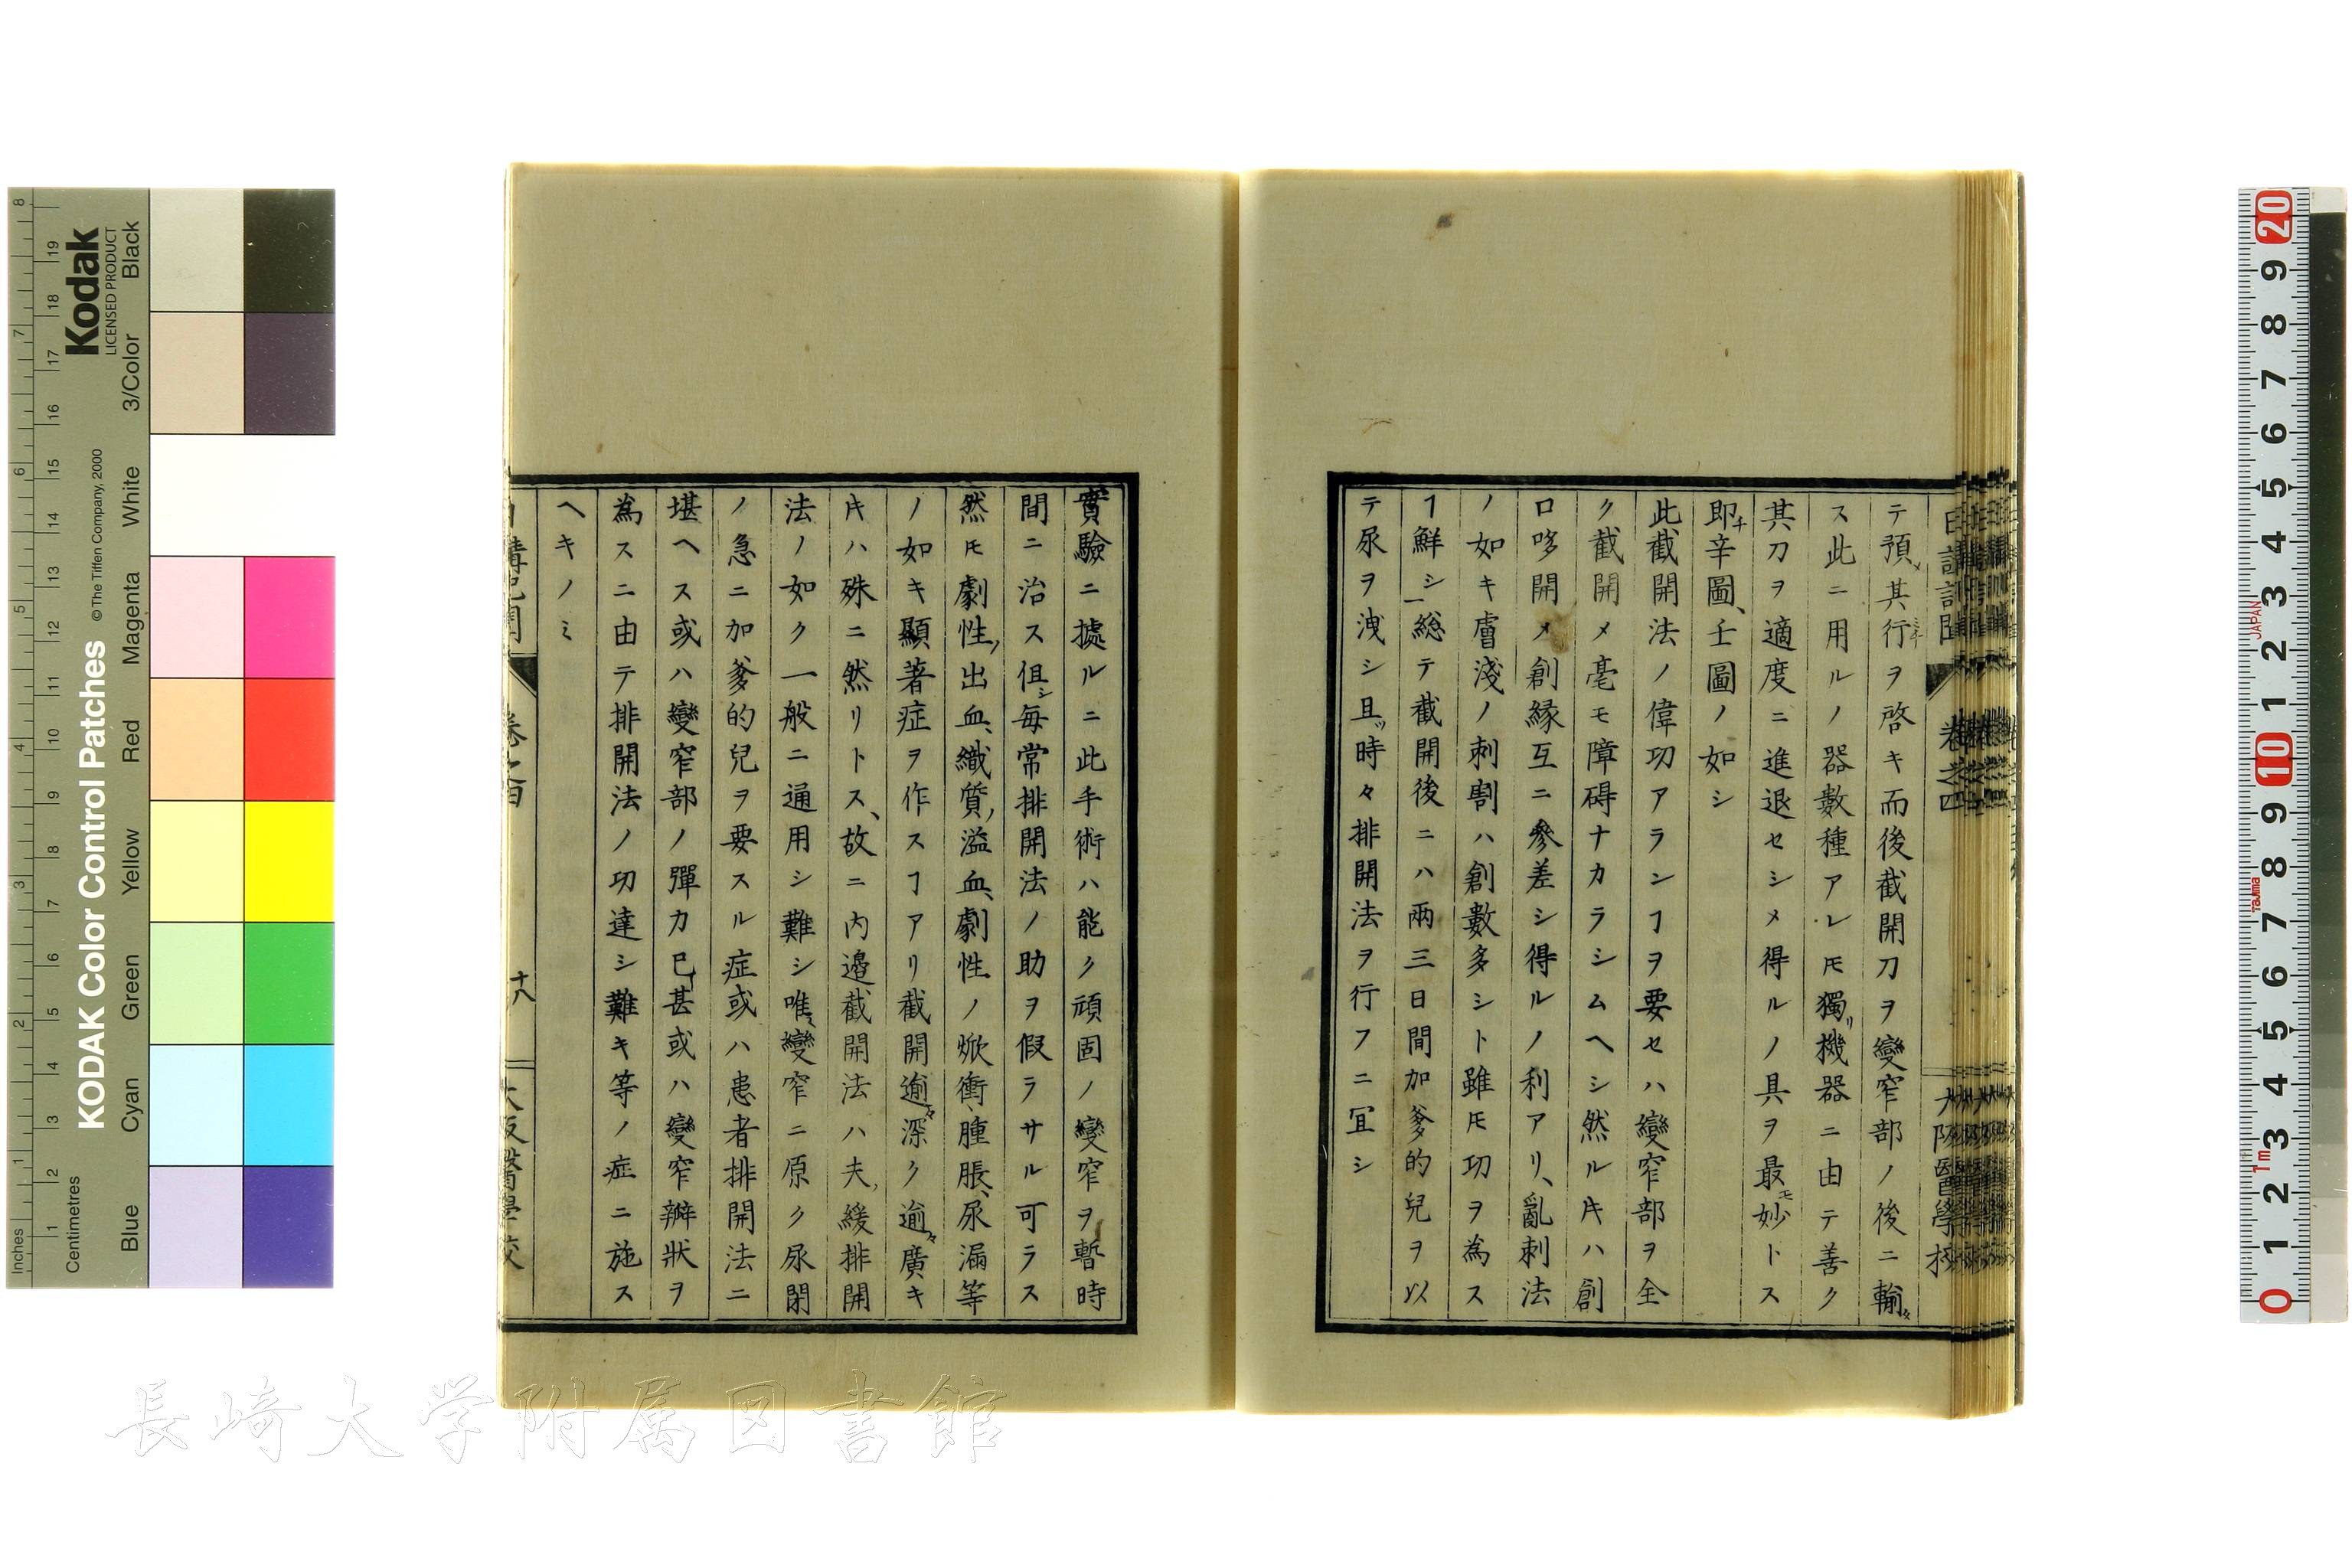 テ預メ其行ヲ啓キ而後截開刀ヲ變窄部ノ後ニ輸
ス此ニ用ルノ器數種アレ𪜈獨リ機器ニ由テ善ク
其刀ヲ適度ニ進退セシメ得ルノ具ヲ最モ妙トス
即チ辛圖、壬圖ノ如シ
此截開法ノ偉功アランヿヲ要セハ變窄部ヲ全
ク截開メ毫モ障碍ナカラシムヘシ然ル片ハ創
口哆開メ創縁互ニ參差シ得ルノ利アリ、亂刺法
ノ如キ膚淺ノ刺割ハ創數多シト雖𪜈功ヲ為ス
ヿ鮮シ総テ截開後ニハ兩三日間加爹的兒ヲ以
テ尿ヲ洩シ且ツ時々排開法ヲ行フニ冝シ
實驗ニ據ルニ此手術ハ能ク頑固ノ變窄ヲ暫時
間ニ治ス但シ毎常排開法ノ助ヲ假ラサル可ラス
然𪜈劇性出血、織質溢血、劇性ノ焮衝、腫脹、尿漏等
ノ如キ顯著症ヲ作スヿアリ截開逾々深ク逾々廣キ
片ハ殊ニ然リトス、故ニ内邉截開法ハ夫緩排開
法ノ如ク一般ニ通用シ難シ唯變窄ニ原ク尿閉
ノ急ニ加爹的兒ヲ要スル症或ハ患者排開法ニ
堪ヘス或ハ變窄部ノ彈力已甚或ハ變窄瓣狀ヲ
為スニ由テ排開法ノ功達シ難キ等ノ症ニ施ス
ヘキノミ
十八
Kodak
LICENSED PRODUCT
KODAK Color Control Patches
© The Tiffen Company, 2000
Blue Cyan Green Yellow Red Magenta White 3/Color Black
Inches
Centimetres
JAPAN
Tajima
1m
長崎大学附属図書館